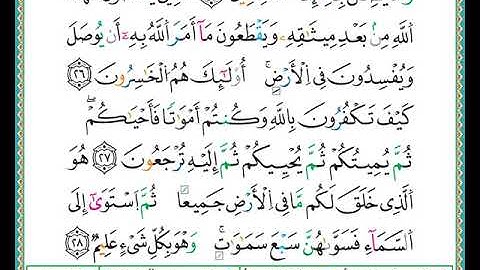 ٱللَّهِ مِنۢ بَعْدِ مِيثَٰقِهِۦ وَيَقْطَعُونَ مَآ أَمَرَ ٱللَّهُ بِهِۦٓ أَن يُوصَلَ
وَيُفْسِدُونَ فِى ٱلْأَرْضِ ۚ أُو۟لَٰٓئِكَ هُمُ ٱلْخَٰسِرُونَ ٢٦
كَيْفَ تَكْفُرُونَ بِٱللَّهِ وَكُنتُمْ أَمْوَٰتًا فَأَحْيَٰكُمْ ۖ
ثُمَّ يُمِيتُكُمْ ثُمَّ يُحْيِيكُمْ ثُمَّ إِلَيْهِ تُرْجَعُونَ ٢٧ هُوَ
ٱلَّذِى خَلَقَ لَكُم مَّا فِى ٱلْأَرْضِ جَمِيعًا ثُمَّ ٱسْتَوَىٰٓ إِلَى
ٱلسَّمَآءِ فَسَوَّىٰهُنَّ سَبْعَ سَمَٰوَٰتٍ ۚ وَهُوَ بِكُلِّ شَىْءٍ عَلِيمٌ ٢٨